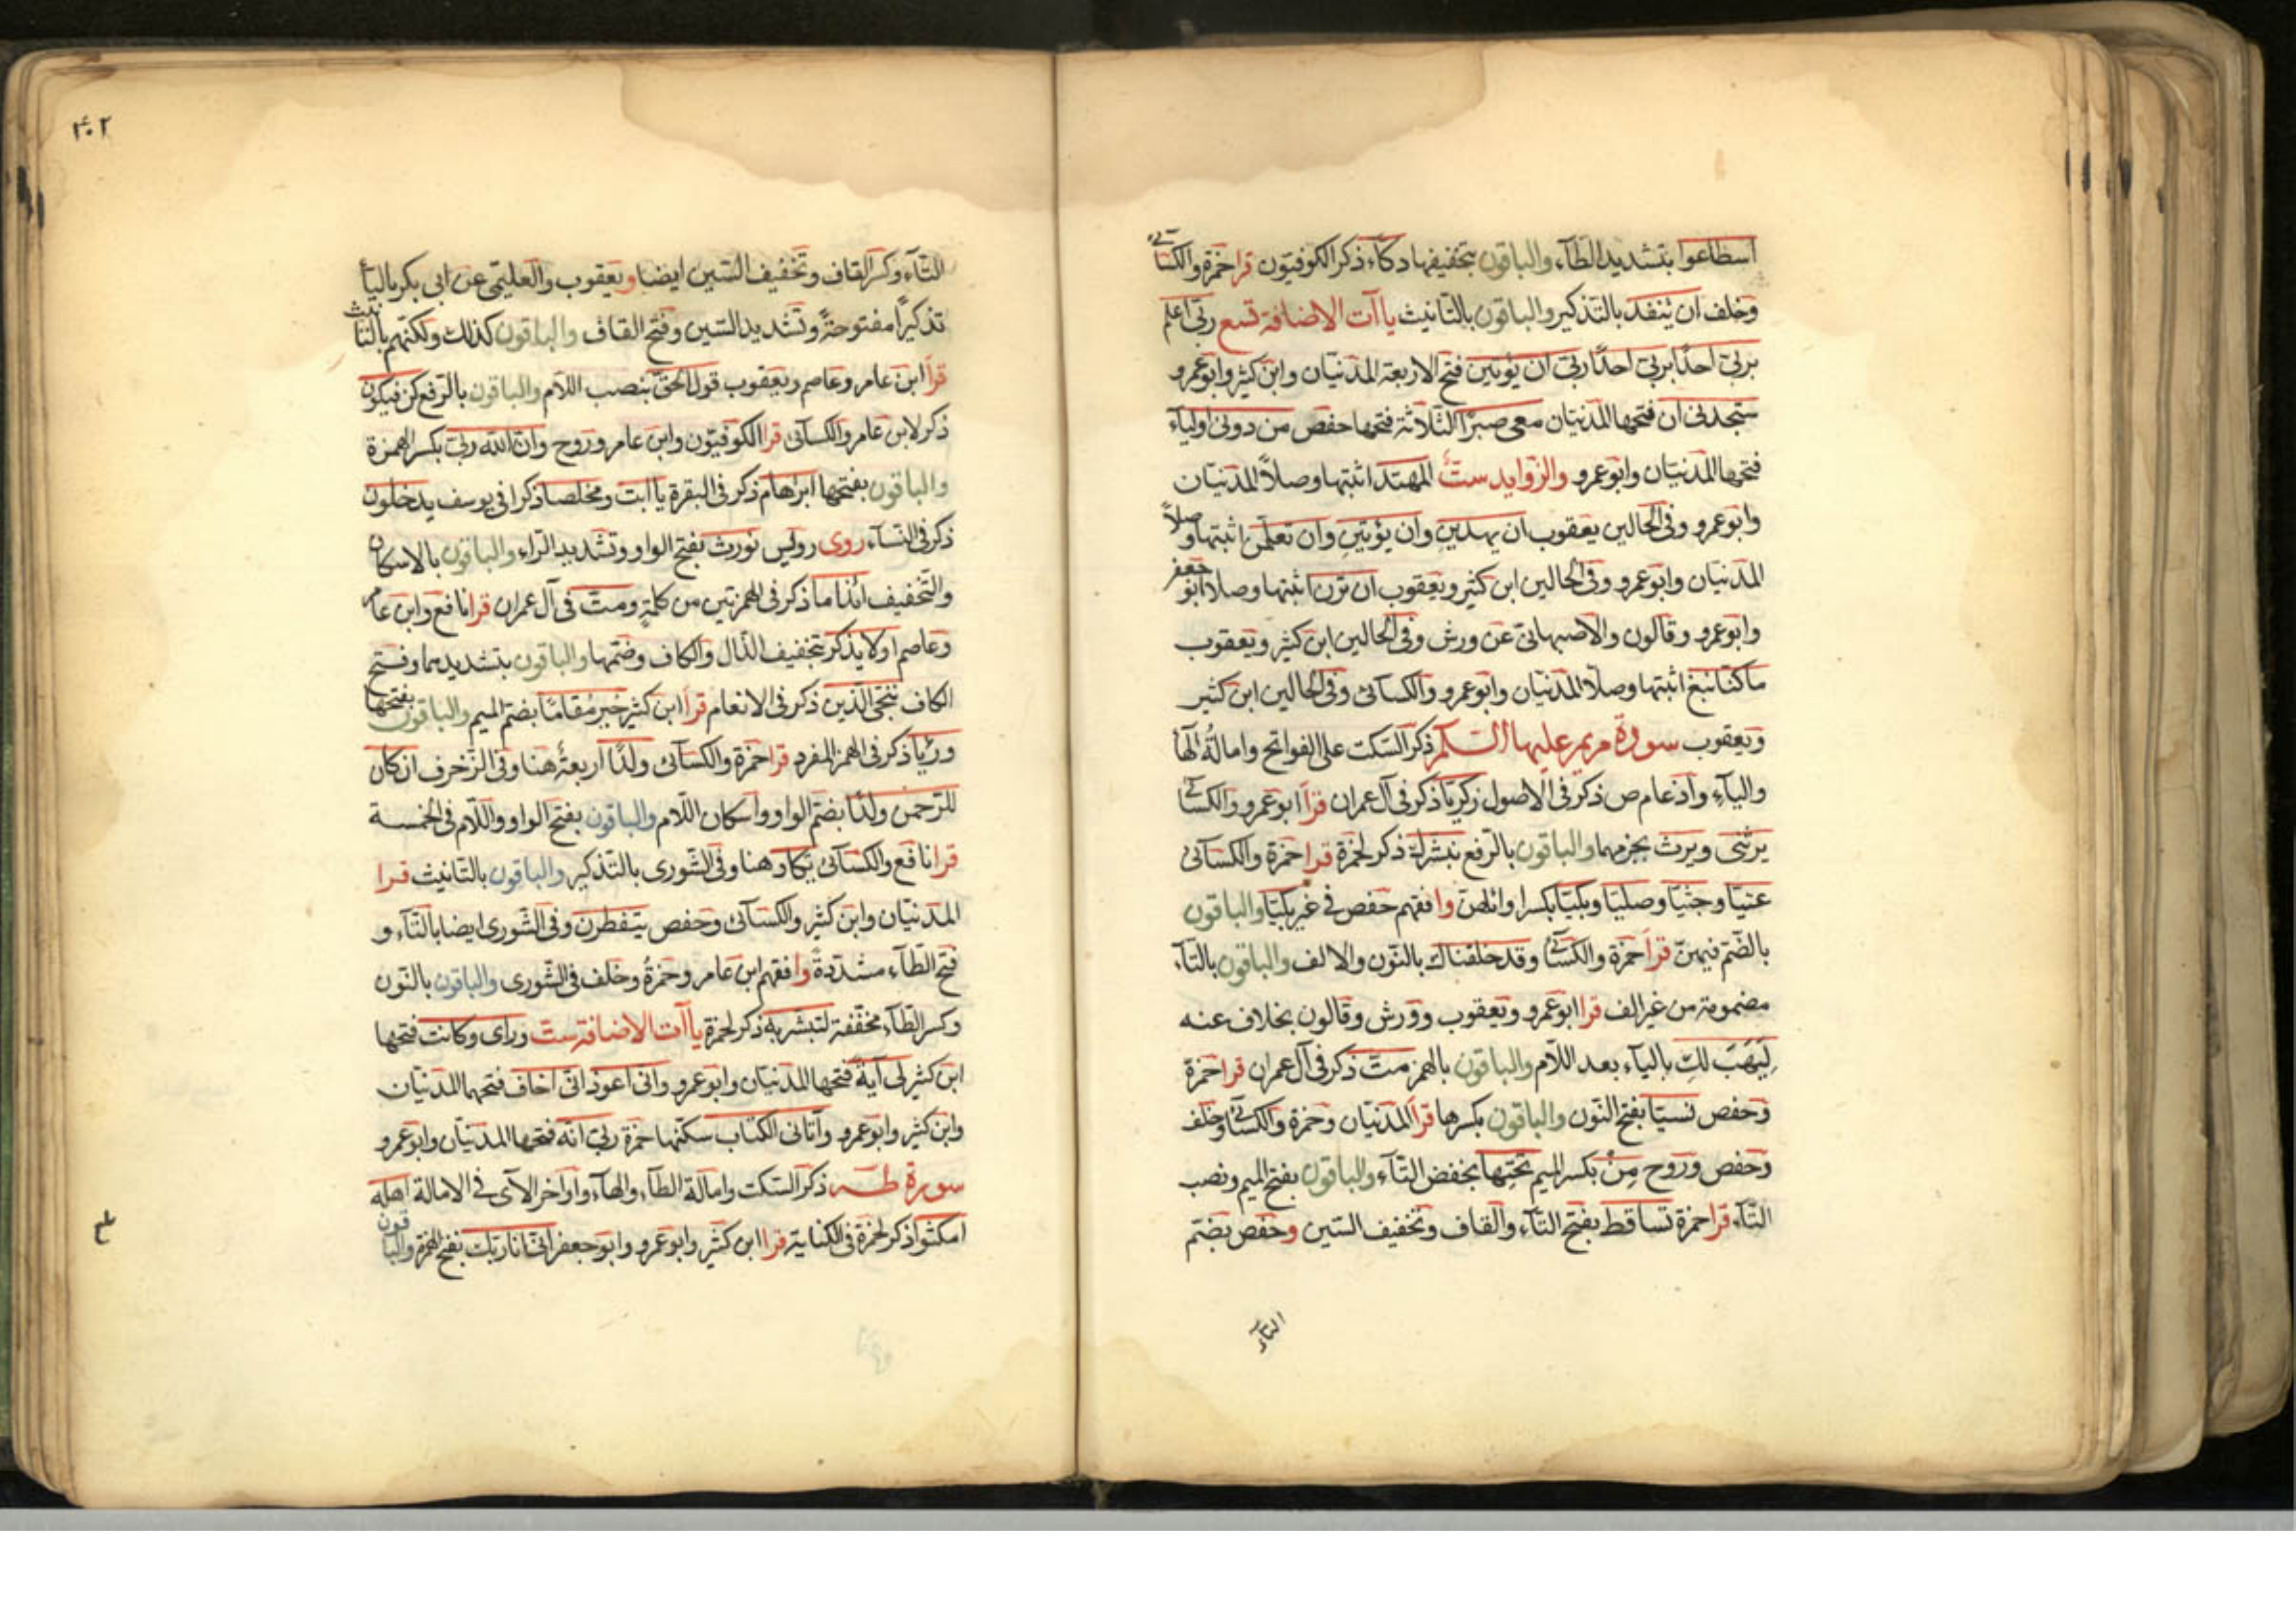 اسطاعوا بتشديد الطآء والباقون بتخفيفها دكآء ذكر الكوفيون قرا حمزة والكسائى
وخلف ان ينفد بالتذكير والباقون بالتانيث يا آت الاضافة تسع ربى اعلم
بربى احدا بربى احدا ربى ان يؤتين فتح الاربعة المدنيان وابن كثير وابو عمرو
ستجدنى ان فتحها المدنيان معى صبرا الثلاثة فتحها حفص من دونى اوليآء
فتحها المدنيان وابو عمرو والزوايد ست المهتد اثبتها وصلاً المدنيان
وابو عمرو وفى الحالين يعقوب ان يهدين وان يؤتين وان تعلمن اثبتها وصلاً
المدنيان وابو عمرو وفى الحالين ابن كثير ويعقوب ان ترن اثبتها وصلا ابو جعفر
وابو عمرو وقالون والاصبهانى عن ورش وفى الحالين ابن كثير ويعقوب
ما كنا نبغ اثبتها وصلا المدنيان وابو عمرو والكسآئى وفى الحالين ابن كثير
ويعقوب سورة مريم عليها السلم ذكر السكت على الفواتح وامالة الهآ
واليآء وادغام ص ذكر فى الاصول زكريا ذكر فى آل عمران قرأ ابو عمرو والكسائى
يرثنى ويرث بجزمهما والباقون بالرفع نبشرك ذكر لحمزة قرا حمزة والكسآئى
عتيا وجثيا وصليا وبكيا بكسر اوائلهن وافقهم حفص فى غير بكيا والباقون
بالضم فيهن قرأ حمزة والكسائى وقد خلقناك بالنون والالف والباقون بالتآء
مضمومة من غير الف قرا ابو عمرو ويعقوب وورش وقالون بخلاف عنه
لِيَهَبَ لكِ باليآء بعد اللام والباقون بالهمز مت ذكر فى آل عمران قرا حمزة
وحفص نسيا بفتح النون والباقون بكسرها قرأ المدنيان وحمزة والكسائى وخلف
وحفص وروح مِنْ بكسر الميم تحتِها بخفض التآء والباقون بفتح الميم ونصب
التآء قرا حمزة تساقط بفتح التآء والقاف وتخفيف السين وحفص بضم
التآء
٤٠٢
التآء وكسر القاف وتخفيف السين ايضا ويعقوب والعليمى عن ابى بكر باليآ
تذكيراً مفتوحةً وتشديد السين وفتح القاف والباقون كذلك ولكنهم بالتانيث
قرأ ابن عامر وعاصم ويعقوب قول الحق بنصب اللام والباقون بالرفع كن فيكون
ذكر لابن عامر والكسآئى قرا الكوفيون وابن عامر وروح وان الله ربى بكسر الهمزة
والباقون بفتحها ابراهام ذكر فى البقرة يا ابت ومخلصا ذكرا فى يوسف يدخلون
ذكر فى النسآء روى رويس نورث بفتح الواو وتشديد الرآء والباقون بالاسكان
والتخفيف ائذا ما ذكر فى الهمزتين من كلمة ومت فى آل عمران قرا نافع وابن عامر
وعاصم اولا يذكر بتخفيف الذال والكاف وضمها والباقون بتشديدهما وفتح
الكاف ننجى الذين ذكر فى الانعام قرأ ابن كثير خير مُقاما بضم الميم والباقون بفتحها
ورئيا ذكر فى الهمز المفرد قرا حمزة والكسآئى ولدا اربعةٌ هنا وفى الزخرف ان كان
للرحمن ولدا بضم الواو واسكان اللام والباقون بفتح الواو واللام فى الخمسة
قرا نافع والكسآئى يكاد هنا وفى الشورى بالتذكير والباقون بالتانيث قرا
المدنيان وابن كثير والكسآئى وحفص يتفطرن وفى الشورى ايضا بالتآء و
فتح الطآء مشددةً وافقهم ابن عامر وحمزةُ وخلف فى الشورى والباقون بالنون
وكسر الطآء مخففة لتبشر به ذكر لحمزة يا آت الاضافة ست ورآى وكانت فتحها
ابن كثير لى آية فتحها المدنيان وابو عمرو وانى اعوذ انى اخاف فتحها المدنيان
وابن كثير وابو عمرو وآتانى الكتاب سكنها حمزة ربى انه فتحها المدنيان وابو عمرو
سورة طه ذكر السكت وامالة الطآء والهآء واواخر الآى فى الامالة اهله
امكثوا ذكر لحمزة فى الكناية قرا ابن كثير وابو عمرو وابو جعفر انى انا ربك بفتح الهمزة والباقون